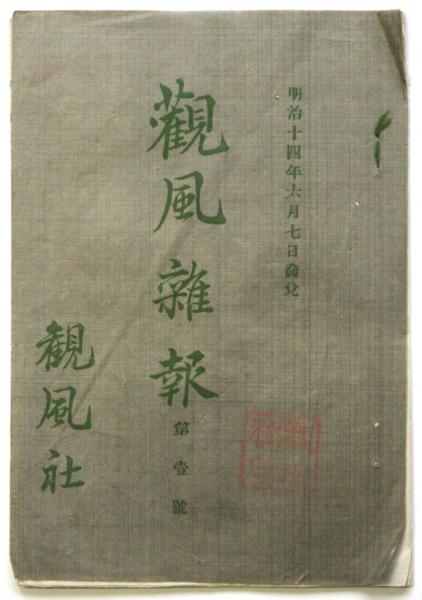 明治十四年六月七日發兌
觀風雜報
第壹號
観風社